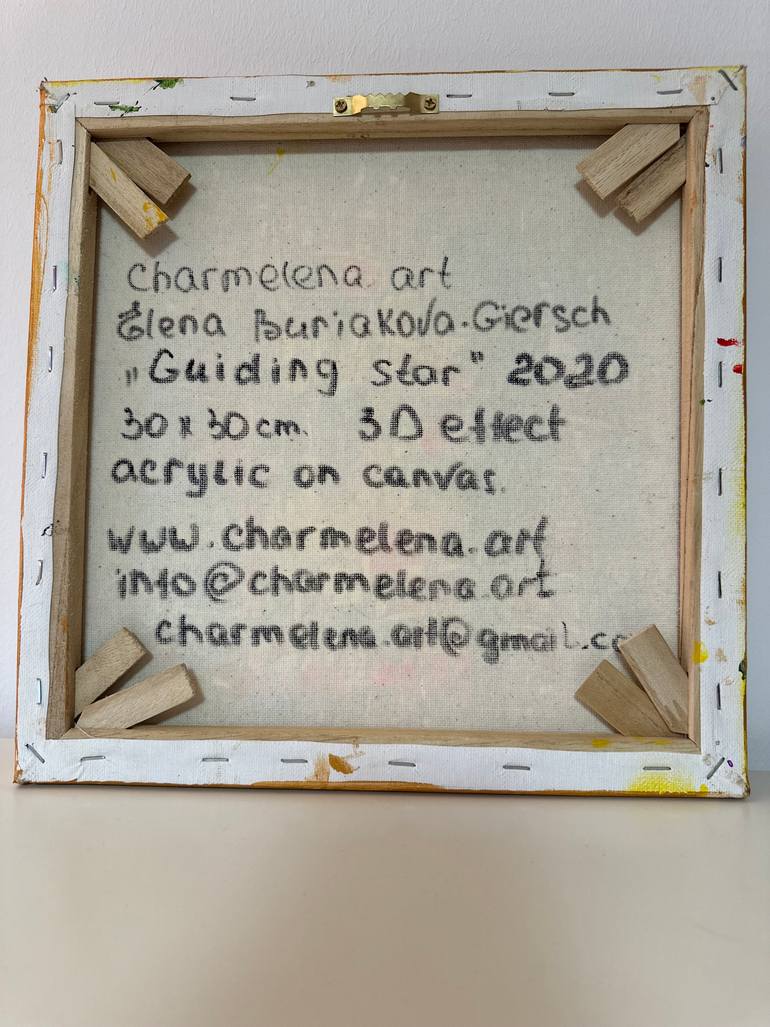 charmelena art
Elena Buriakova-Giersch
„Guiding star" 2020
30 x 30 cm. 3D effect
acrylic on canvas.
www.charmelena.art
info@charmelena.art
charmelena.art@gmail.co